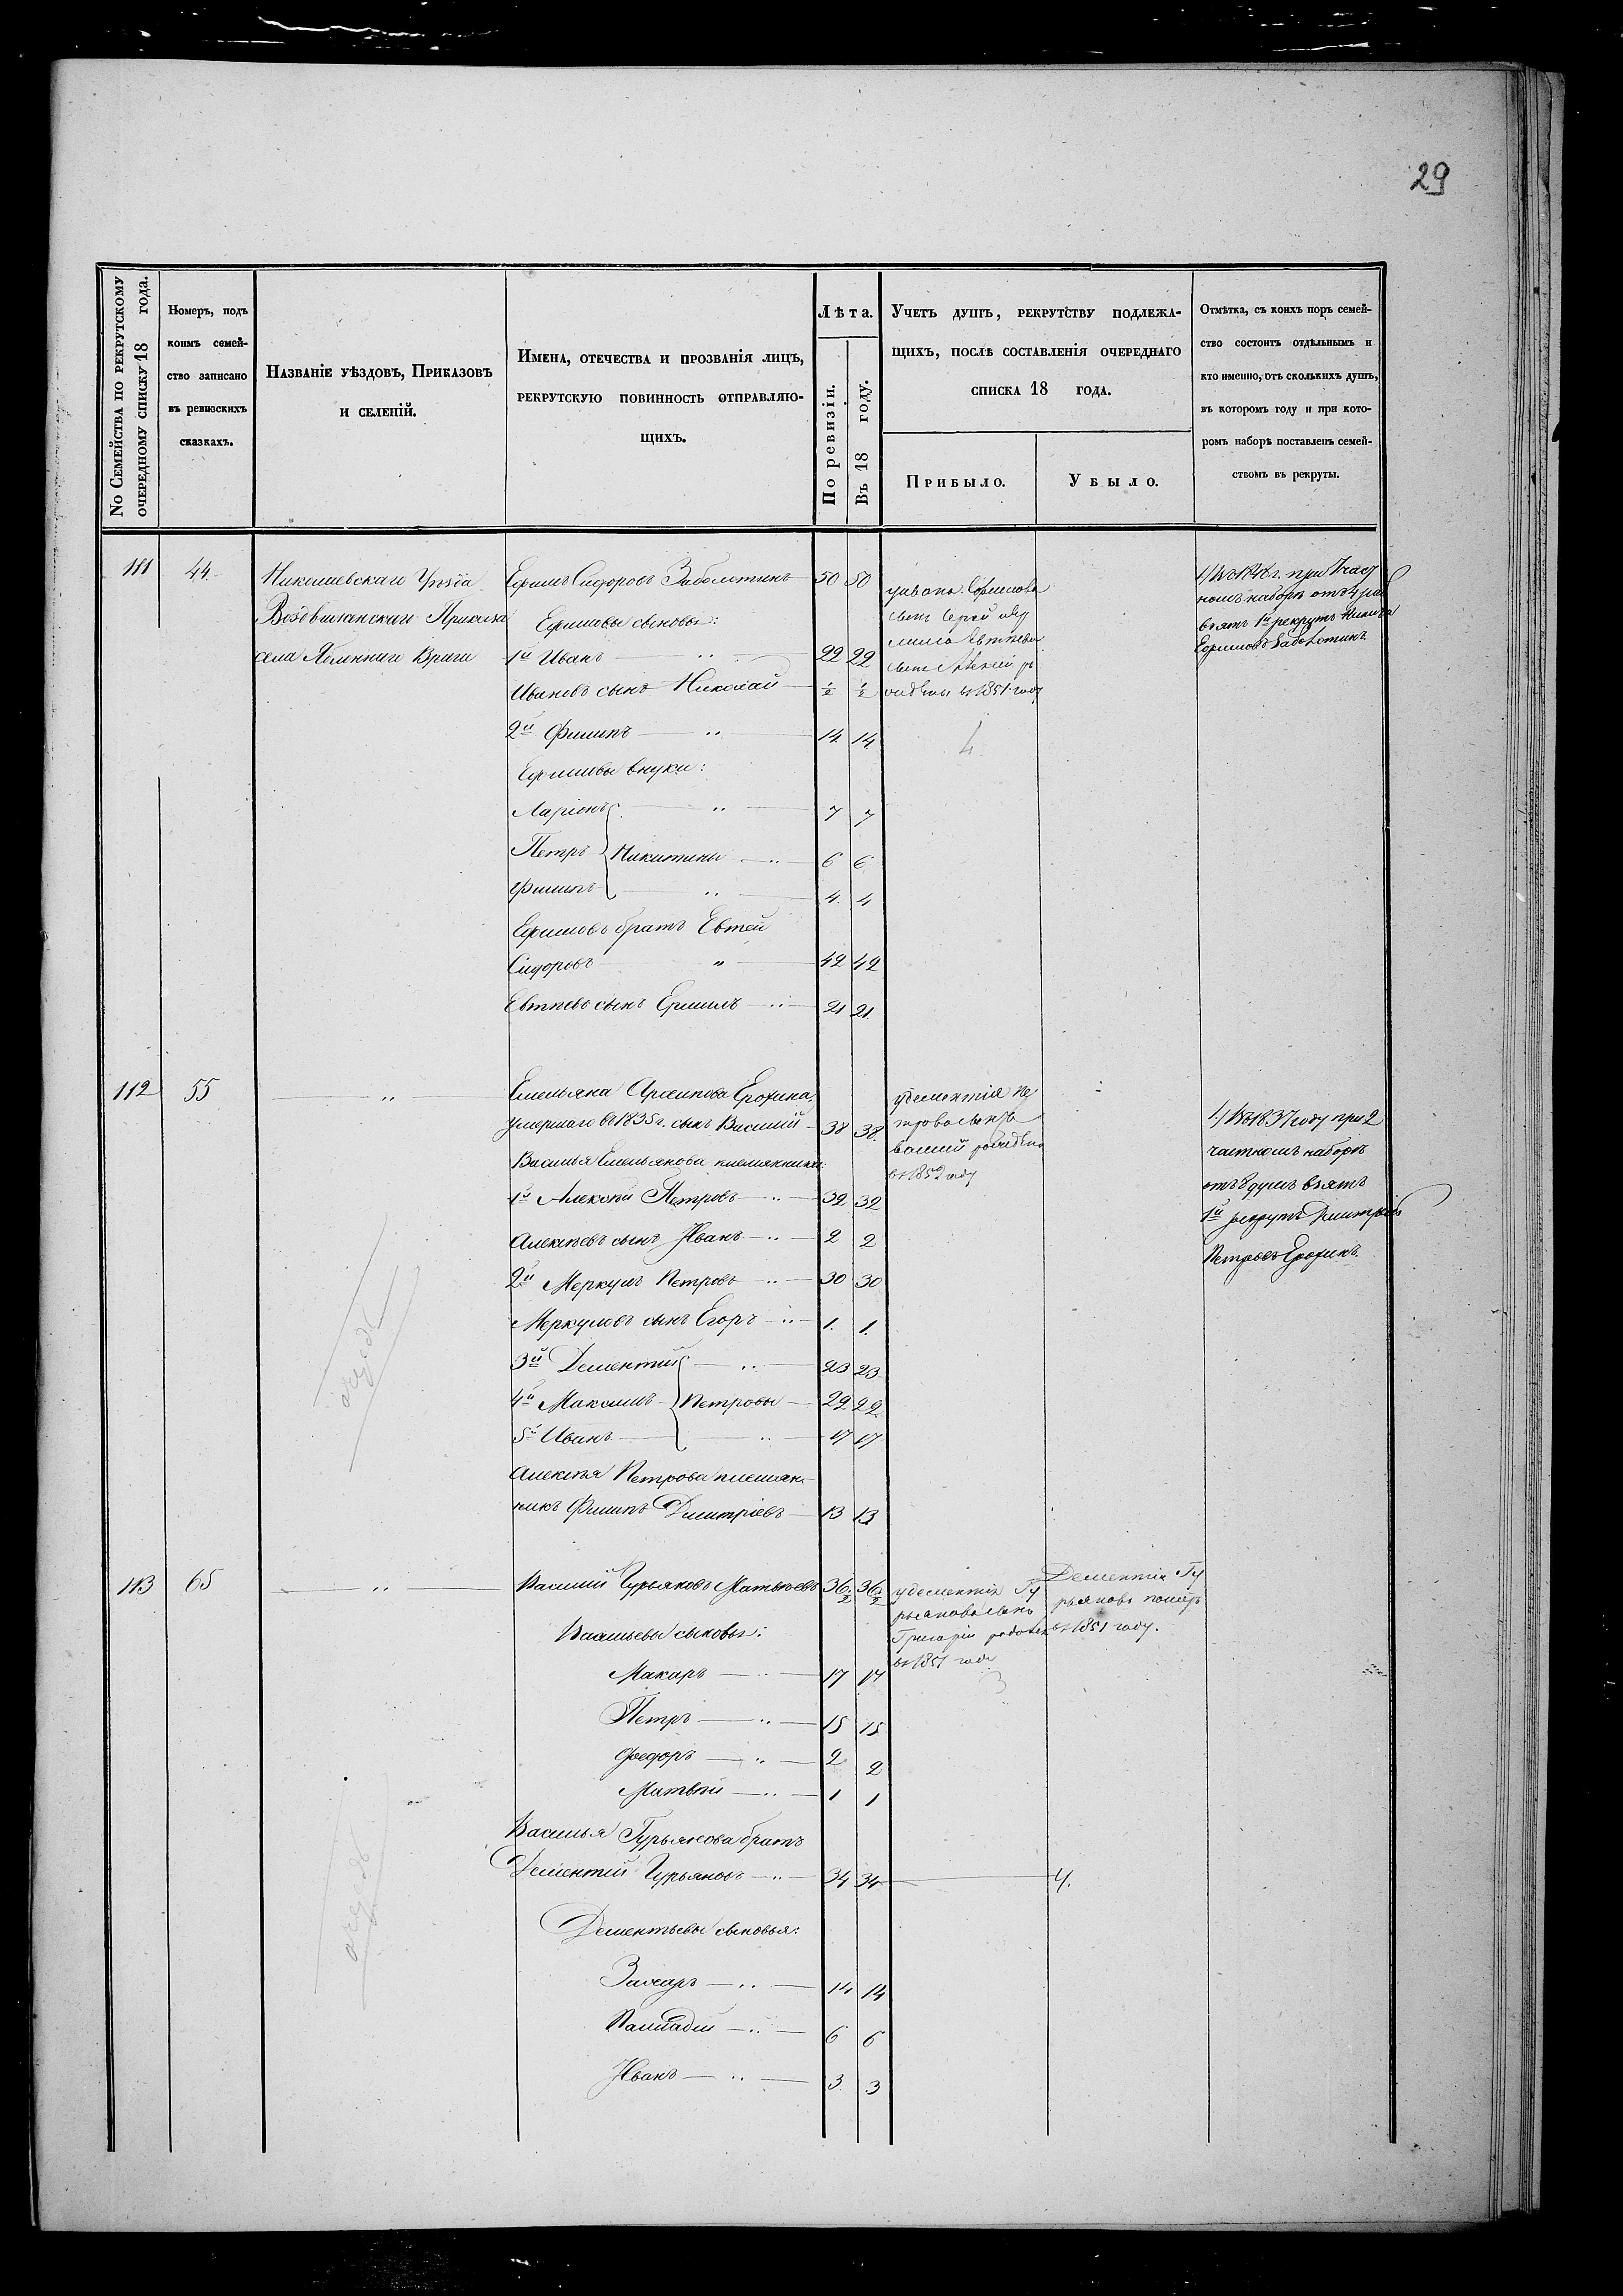 29
No Семейства по рекрутскому
очередному списку 18 года.
Номеръ, подъ
коимъ семей-
ство записано
въ ревизскихъ
сказкахъ.
Названіе уѣздовъ, Приказовъ
и селеній.
Имена, отечества и прозванія лицъ,
рекрутскую повинность отправляю-
щихъ.
Лѣта.
По ревизіи.
Въ 18 году.
Учетъ душъ, рекрутству подлежа-
щихъ, послѣ составленія очереднаго
списка 18 года.
Прибыло.
Убыло.
Отмѣтка, съ коихъ поръ семей-
ство состоитъ отдѣльнымъ и
кто именно, отъ сколькихъ душъ,
въ которомъ году и при кото-
ромъ наборѣ поставленъ семей-
ствомъ въ рекруты.
111 44. Николаевскаго Уѣзда Ефимъ Сидоровъ Заболотинъ 50 50
Воздвиженскаго Приказа Ефимовы сыновья:
села Яблоннаго Врага 1й Иванъ — „ — 22 22
Ивановъ сынъ Николай ½ ½
2й Филипъ — „ — 14 14
Ефимовы внуки:
Ларіонъ — „ — 7 7
Петръ Никитины — „ — 6 6
Филипъ — „ — 4. 4
Ефимовъ братъ Евтей
Сидоровъ — „ — 42 42
Евтѣевъ сынъ Ермилъ — „ — 21 21.
у Ивана Ефимова
сынъ Сергей
Евтѣева
сынъ Алексей
въ 1851 году
4
1) Въ 1848 г. при
номъ наборѣ отъ 4
взятъ 1й рекрутъ Никита
Ефимовъ Заболотинъ.
112 55 — „ — Емельяна Архипова Ерофина,
умершаго въ 1835 г. сынъ Василий 38 38.
Василья Емельянова племянники:
1й Алексѣй Петровъ — „ — 32 32
Алексѣевъ сынъ Иванъ — „ — 2 2
2й Меркулъ Петровъ — „ — 30 30
Меркуловъ сынъ Егоръ — „ — 1. 1.
3й Дементий — „ — 23 23
4й Максимъ Петровы — 22 22
5й Иванъ — „ — 17 17
Алексѣя Петрова племян-
никъ Филипъ Дмитріевъ 13 13
у Дементія Пе
трова сынъ
въ 1852 году
1) Въ 1837 году при 2
частномъ наборѣ
отъ 8 душъ взятъ
1й рекрутъ Дмитрій
Петровъ Ерофинъ.
очередь
113 65 — „ — Василий Гурьяновъ Матвѣевъ 36½ 36½
Васильевы сыновья:
Макаръ — „ — 17 17
Петръ — „ — 15 15
Федоръ — „ — 2 2
Матвѣй — „ — 1 1
Василья Гурьянова братъ
Дементий Гурьяновъ — „ — 34 34 — У.
Дементьевы сыновья:
Захаръ — „ — 14 14
Палладий — „ — 6 6
Иванъ — „ — 3. 3
у Дементія Гу
рьянова сынъ
Григорій родился
въ 1851 году
3
Дементій Гу
рьяновъ померъ
въ 1851 году.
очередь